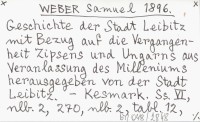 WEBER Samuel 1896.
Geschichte der Stadt Leibitz
mit Bezug auf die Vergangen-
heit Zipsens und Ungarns aus
Veranlassung des Milleniums
herausgegeben von der Stadt
Leibitz. - Kesmark. Ss. VI,
nlb. 2, 270, nlb. 2, tabl. 12,